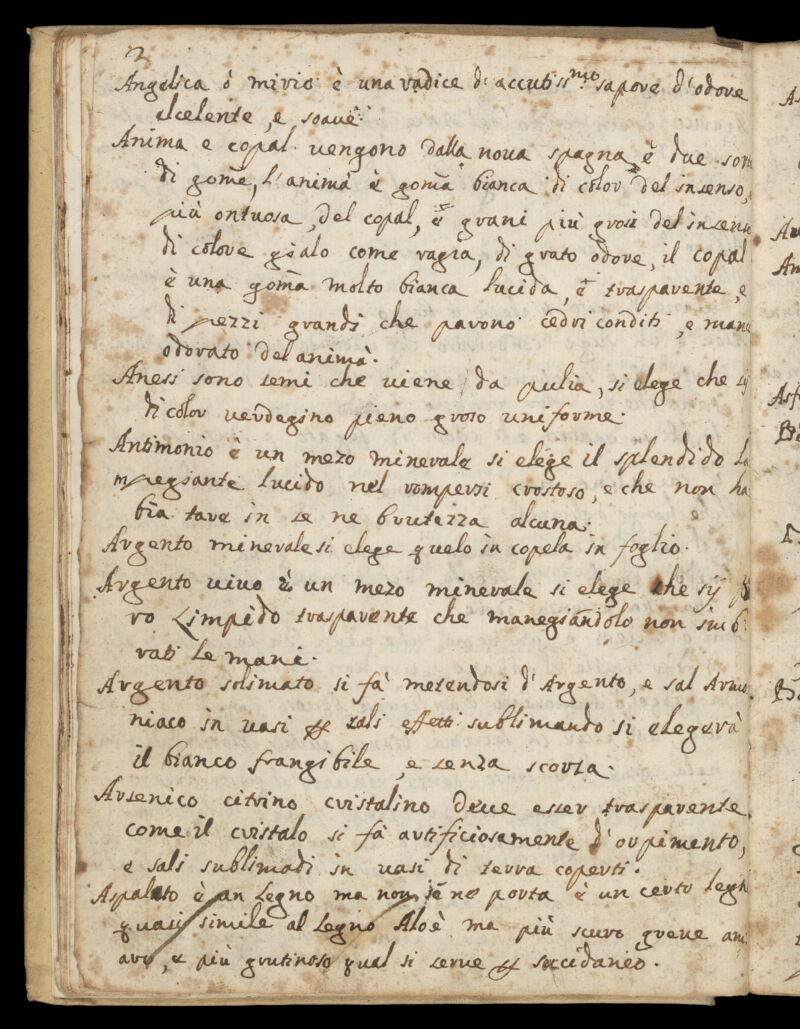 2
Angelica ò mivio è una radice di accutissmo sapore d'odore
elcelente, e soavè
Anima e copal vengono dalla nova spagna, è due sort
di gome, l'animà è goma bianca di color del insenso,
più ontuosa, del copal, è grani più grosi del insens
di colore gialo come ragia, di grato odore, il copal
è una goma molto bianca lucida, è trasparente, e
di pezzi grandi che parono cedri conditi, e mane
odorato del animà.
Anesi sono semi che viene da pulia, si elege che sij
di color verdegino pieno groso uniforme.
Antimonio è un mezo minerale si elege il splendido la
mpegiante lucido nel rompersi crostoso, e che non ha
bia tare in se ne brutezza alcuna.
Argento minerale si elege quelo in copela in foglio.
Argento vivo è un mezo minerale si elege che sij p
ro Limpido trasparente che manegiandolo non imb
rati le mani.
Argento solimato si fà metendosi d'Argento, e sal Armo
niaco in vasi per tali effetti sublimando si elegerà
il bianco frangibile, e senza scorza.
Arsenico citrino cristalino deve esser trasparente
come il cristalo si fà artificiosamente d'orpimento,
e sali sublimadi in vasi di terra coperti.
Aspalato è un Legno ma non se ne porta è un certo legn
quasi simile al Legno Aloè ma più scuro greve am
aro, e più grutinoso qual si serve per sucidaneo.